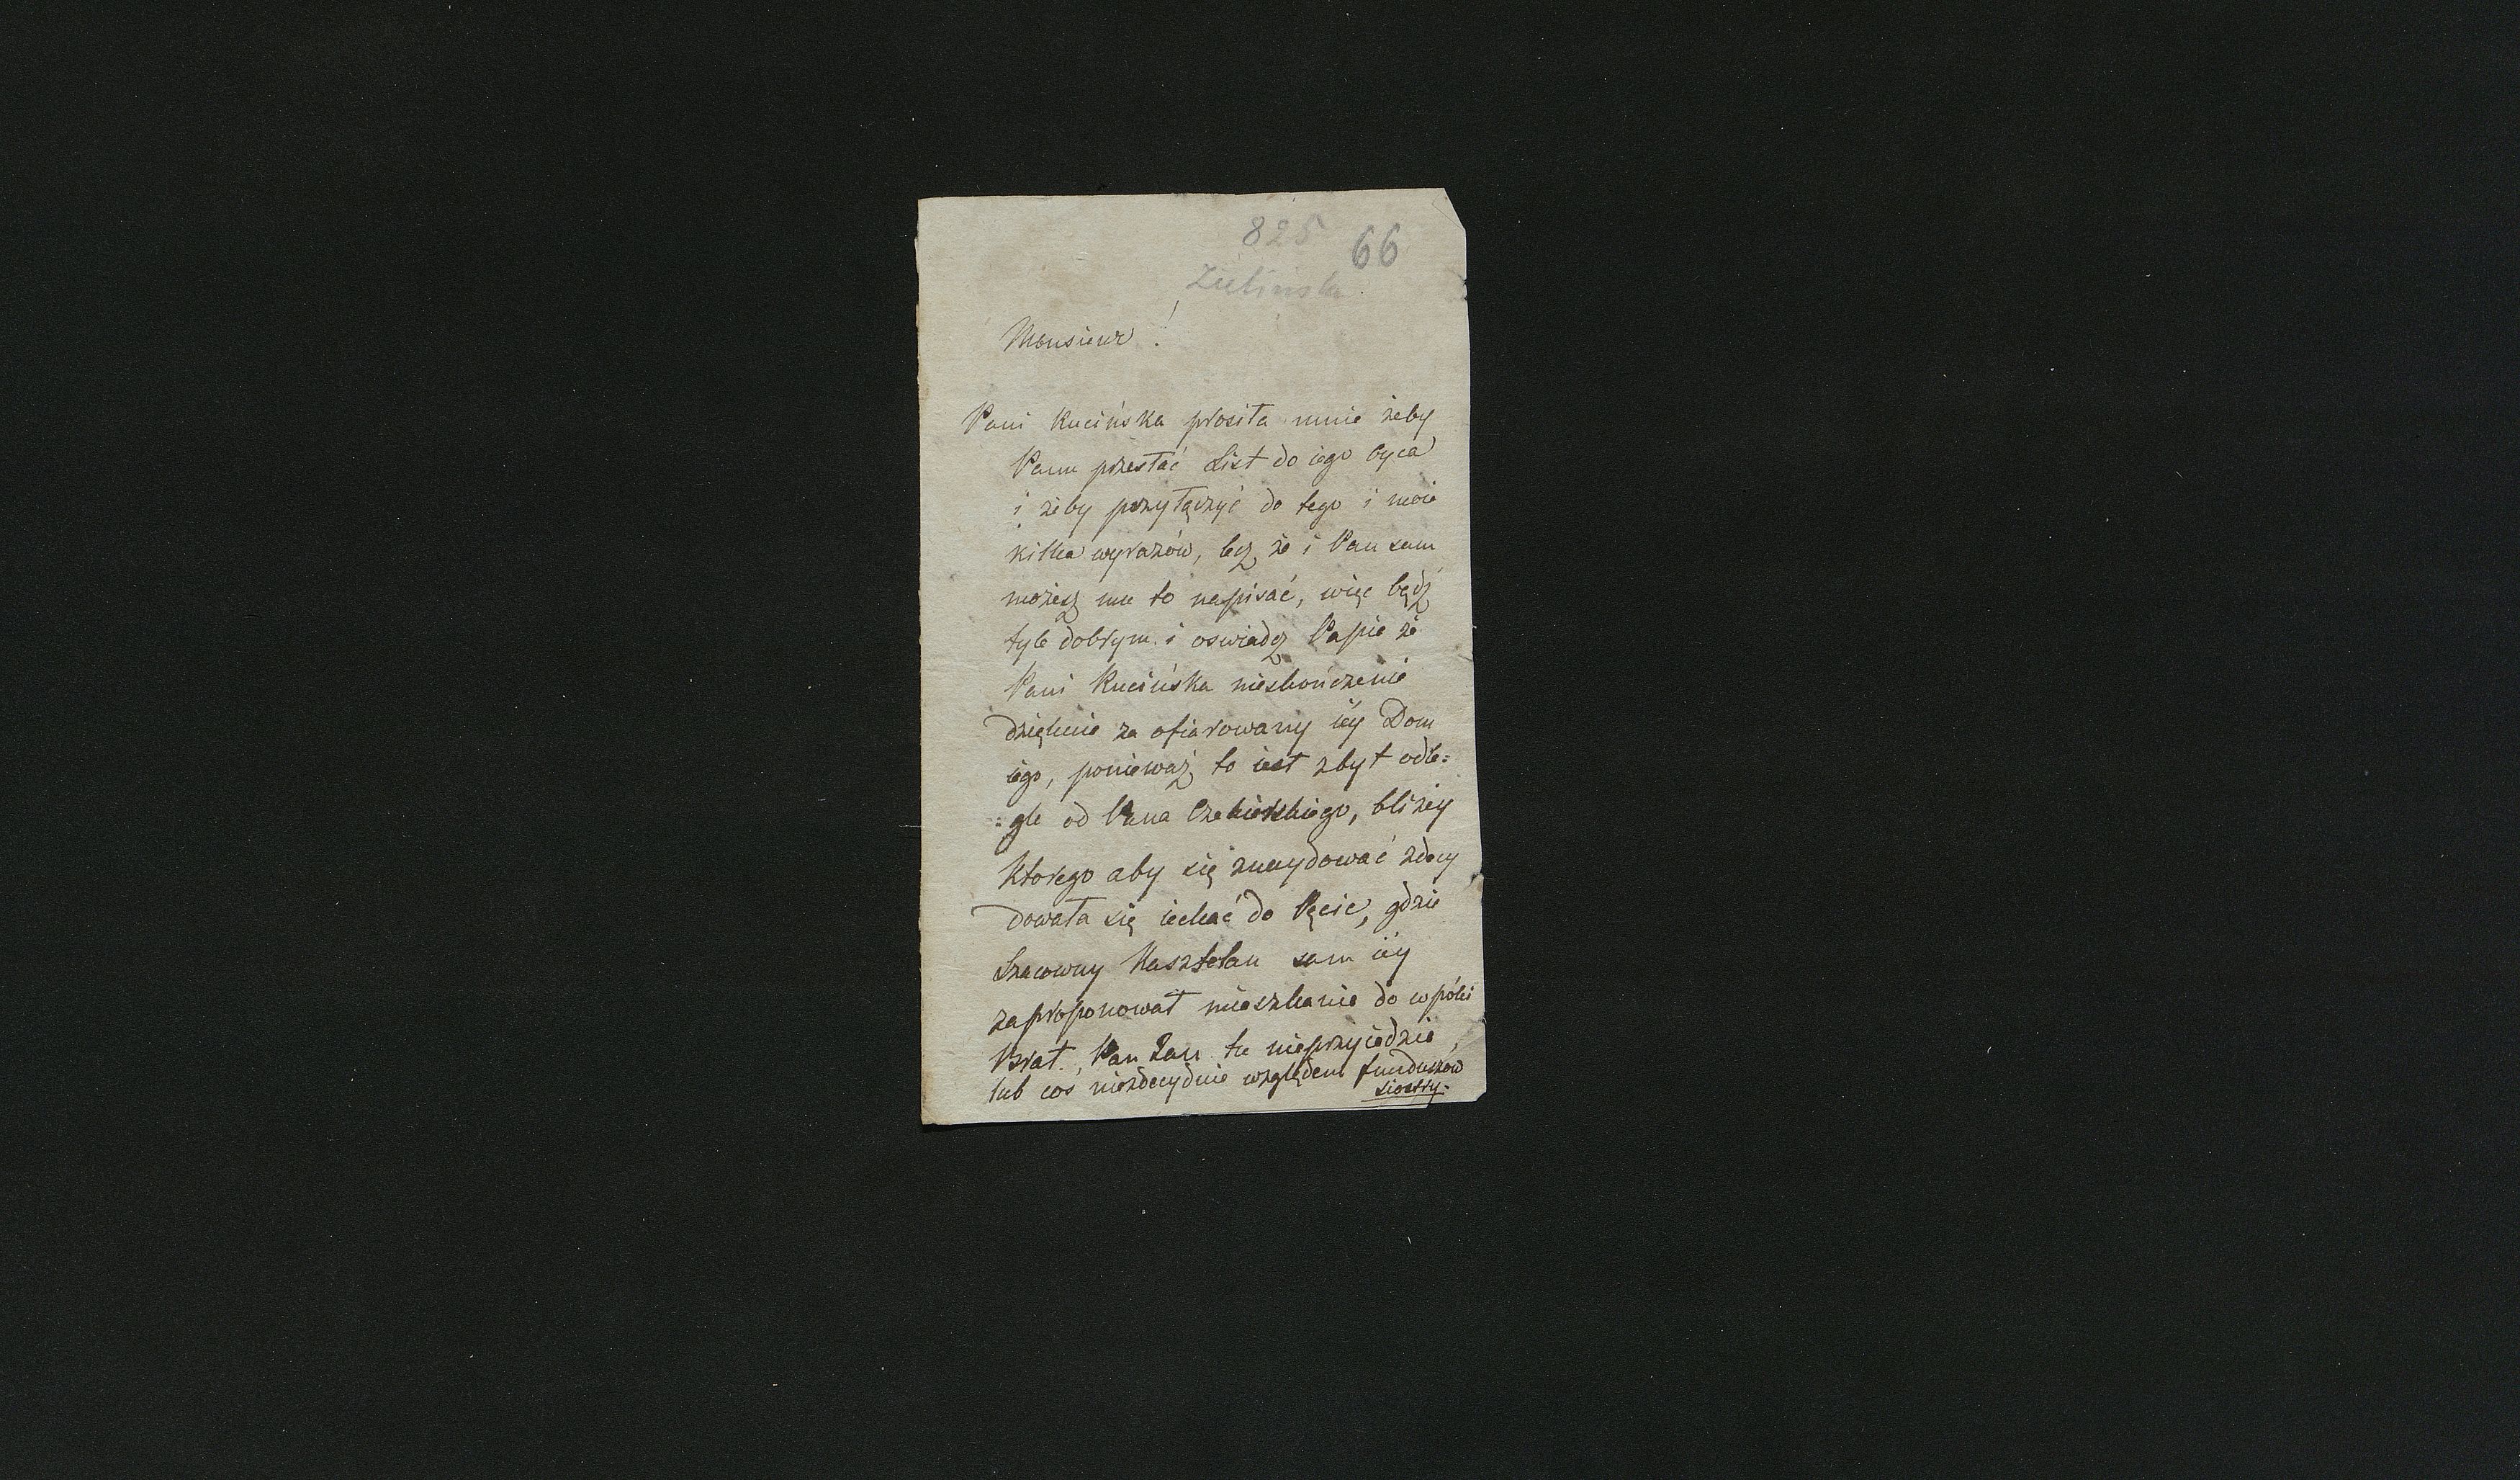 825
66
Zielińska
Monsieur!
Pani Kucińska prosiła mnie żeby
Panu przesłać List do iego Oyca
i żeby przyłączyć do tego i moie
kilka wyrazów, lecz że i Pan sam
możesz mu to napisać, więc bądź
tyle dobrym i oswiadcz Papie że
Pani Kucińska nieskończenie
dziękuie za ofiarowany iéy Dom
iego, ponieważ to iest zbyt odle=
=gle od Pana Czekierskiego, bliżey
ktorego aby się znaydować zdecy
dowała się iechać do Pęcic, gdzie
Szacowny Kasztelan sam iéy
zaproponował mieszkanie do wpóki
Brat, Pan Jan tu nieprzyiedzie,
lub cos niezdecyduie względem funduszow
siostry.